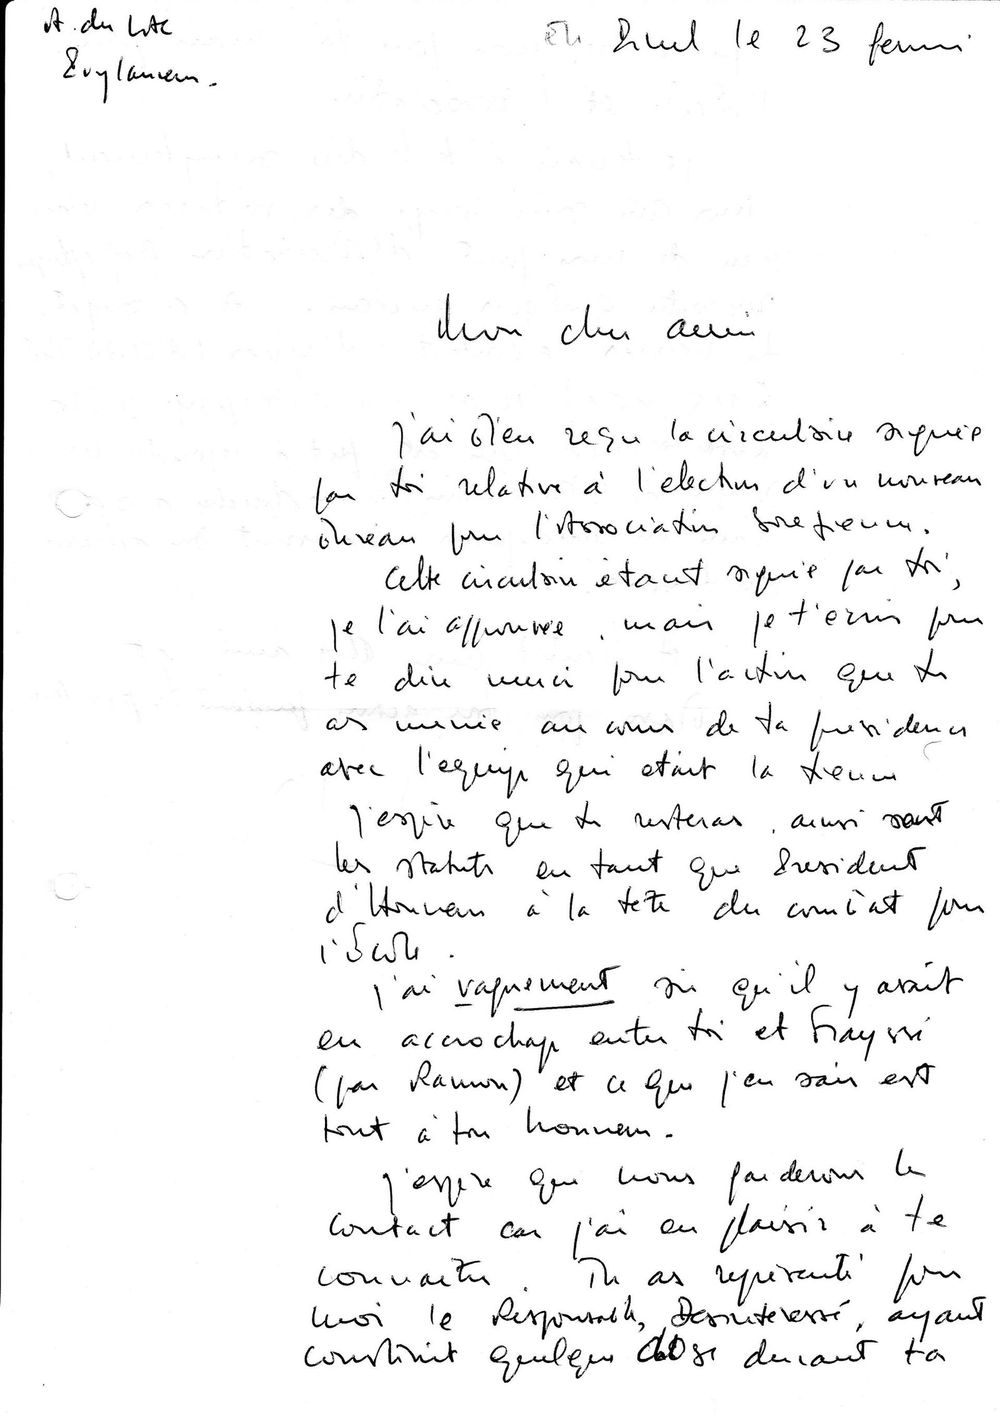 A. du Lac
le 23
Mon cher ami
J'ai bien reçu la circulaire signée
par toi relative à l'élection d'un nouveau
bureau pour l'Association
Cette circulaire étant signée par toi,
je l'ai approuvée, mais je t'écris pour
te dire merci pour l'action que tu
as menée au cours de ta présidence
avec l'équipe qui était la tienne
J'espère que tu resteras, ainsi sont
les statuts en tant que Président
d'Honneur à la tête du combat pour
l'École.
J'ai vaguement su qu'il y avait
eu accrochage entre toi et Frayssé
(par Ramon) et ce que j'en sais est
tout à ton honneur.
J'espère que nous garderons le
contact car j'ai eu plaisir à te
connaître. Tu as représenté pour
moi le Responsable, Désintéressé, ayant
construit quelque chose durant ta